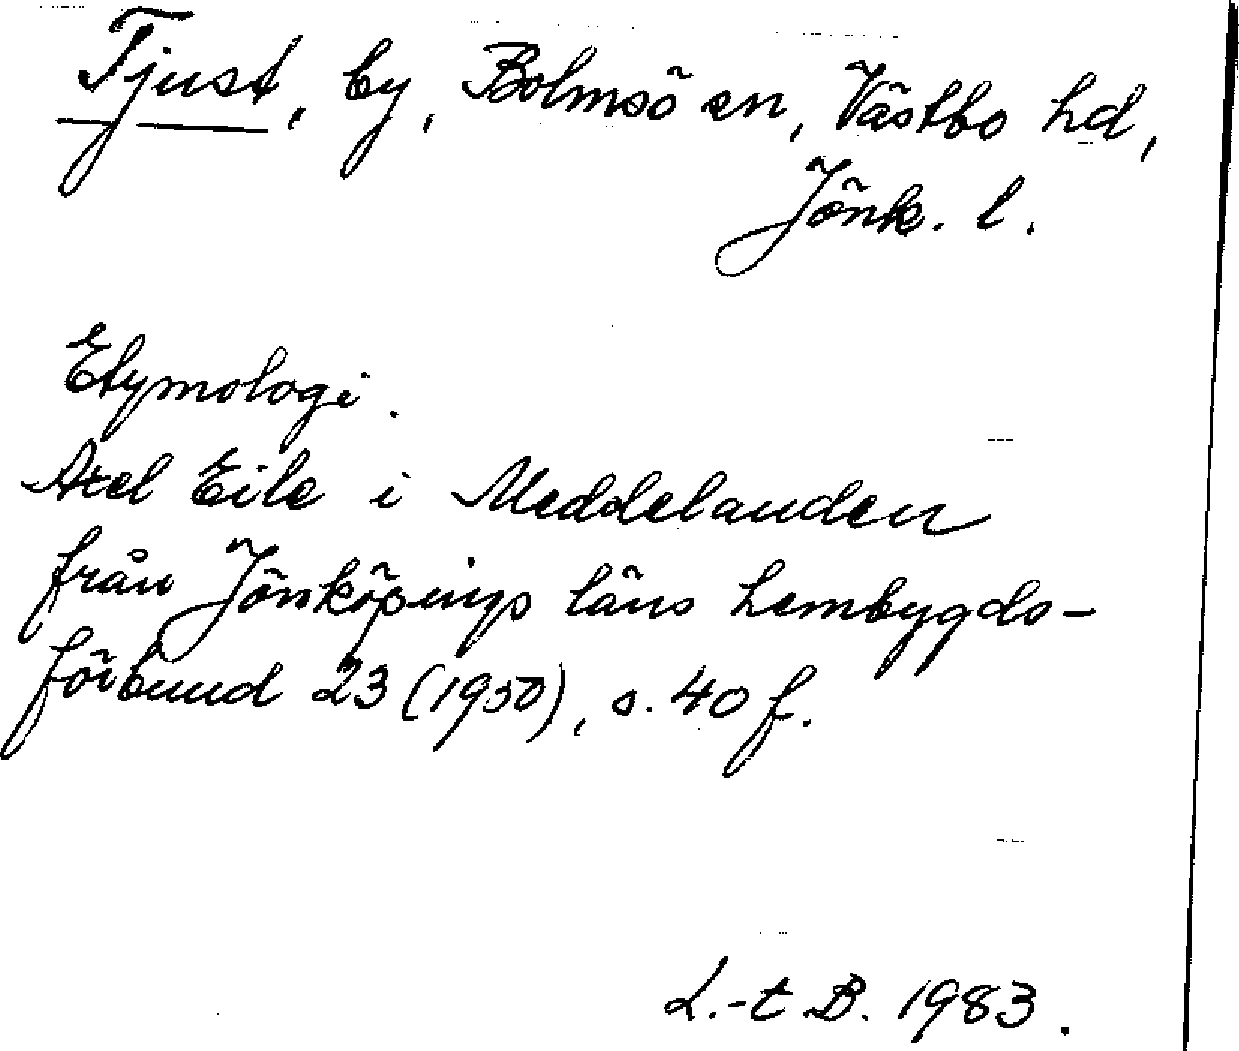 Tjust, by, Bolmsö sn, Västbo hd,
Jönk. l.
Etymologi.
Axel Eile i Meddelanden
från Jönköpings läns hembygds-
förbund 23 (1950), s. 40 f.
L.-t B. 1983.